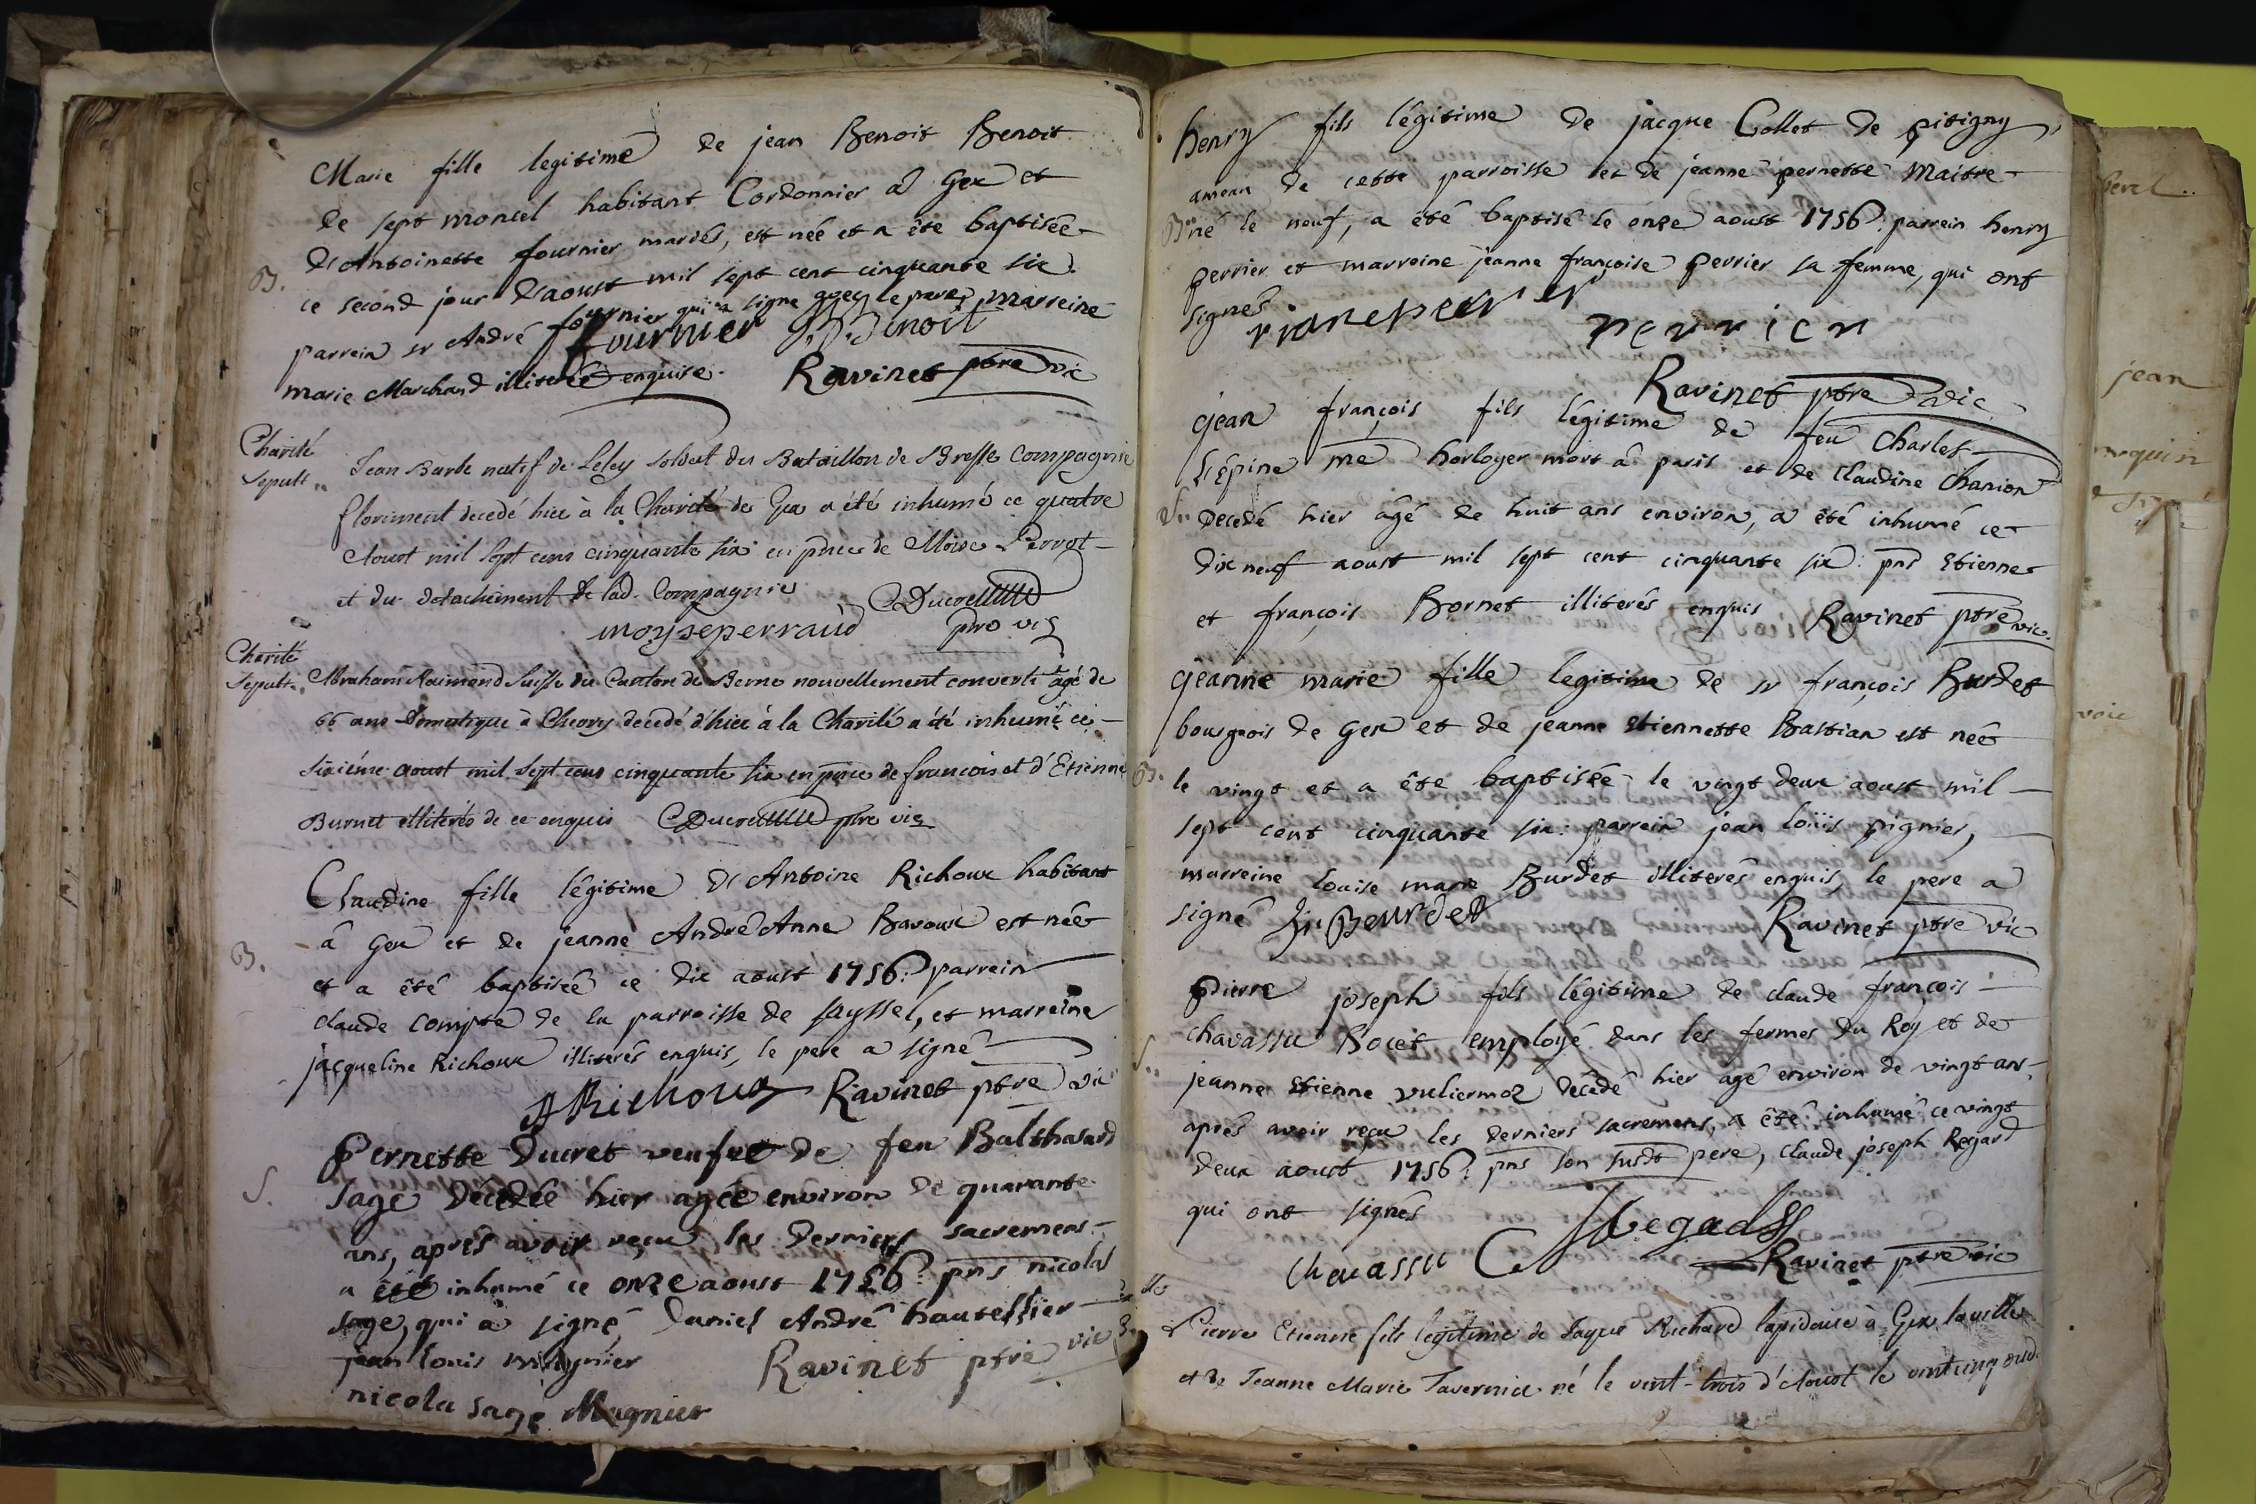 Marie fille legitime de jean Benoit Benoit
de sept moncel habitant Cordonnier a Gex et
d'Antoinette fournier mariés, est née et a été baptisée
B.
ce second jour d'aoust mil sept cent cinquante six.
parrein sr André fournier qui a signé avec le pere, marreine
marie Marchand illiterée enquise.
fournier Benoit
Ravinet ptre vic
Charité
Sepult.
Jean Barbe natif de Leley soldat du Bataillon de Bresse Compagnie
floriment decedé hier à la Charité de Gex a été inhumé ce quatre
Aoust mil sept cens cinquante six en pnce de Moise Perrot
et du detachement de lad. Compagnie
Ducret
moyseperraud ptre vic
Charité
Sepult.
Abraham Raimond Suisse du Canton de Berne nouvellement converti âgé de
66 ans domestique à Chevry decedé d'hier à la Charité a été inhumé ce
sixiéme aoust mil sept cens cinquante six en pnce de francois et d'Etienne
Burnet illiterés de ce enquis Ducret ptre vic
Claudine fille légitime d'Antoine Richoux habitant
â Gex et de jeanne André Anne Bavoux est née
B.
et a été baptisée ce dix aoust 1756. parrein
claude compte de la parroisse de sayssel, et marreine
jacqueline Richoux illiterés enquis, le pere a signé
A Richoux Ravinet ptre vic
Pernette Ducret veufve de feu Balthasard
S.
Sage décédée hier agée environ de quarante
ans, aprés avoir reçu les derniers sacremens
a été inhumé ce onze aoust 1756. pns nicolas
sage, qui a signé, Daniel André hautessier
jean louis mognier
Ravinet ptre vic
nicola sage Mognier
henry fils légitime de jacque Collet de pitigny,
ameau de cette parroisse et de jeanne pernette Maitre
B.
né le neuf, a été baptisé le onze aoust 1756. parrein henry
perrier et marreine jeanne françoise perrier sa femme, qui ont
signés
perrier
Ravinet ptre vic
jean françois fils légitime de feu Charles
L'épine me horloger mort â paris et de Claudine Chanion
S.
decedé hier âgé de huit ans environ, a été inhumé ce
dix neuf aoust mil sept cent cinquante six: pns Etienne
et françois Bornet illiterés enquis Ravinet ptre vic.
jeanne marie fille legitime de sr françois Burdet
bourgeois de Gex et de jeanne Etiennette Bastian est née
B.
le vingt et a été baptisée le vingt deux aoust mil
sept cent cinquante six: parrein jean loüis pignier,
marreine louise marie Burdet illiterés enquis, le pere a
signé Bourdet
Ravinet ptre vic
pierre joseph fils légitime de claude françois
chavassu Bocet employé dans les fermes du Roy et de
S.
jeanne Etienne vuliermoz décédé hier âgé environ de vingt ans,
aprés avoir reçu les derniers sacremens, a été inhumé ce vingt
deux aoust 1756. pns son susdt pere, claude joseph Regard
qui ont signés
Regard
chavassu
Ravinet ptre vic
Pierre Etienne fils legitime de Jaque Richard lapidaire à Gex la ville
et de Jeanne Marie Tavernier né le vint-trois d'Aoust le vint cinq oud.
jean
voie